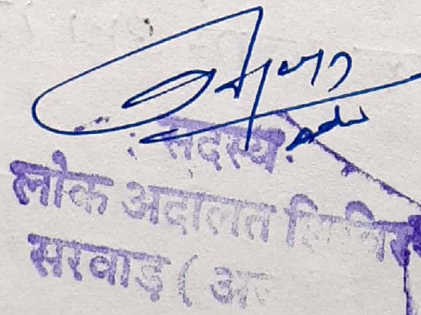 : सदस्य :
लोक अदालत शिविर
सरवाड़ ( अ